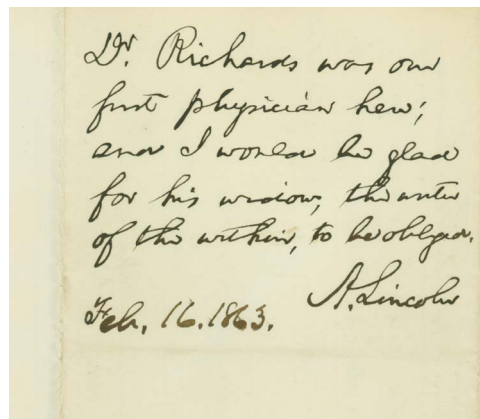 Dr. Richards was our
first physician here;
and I would be glad
for his widow, the writer
of the within, to be obliged.
A. Lincoln
Feb. 16. 1863.